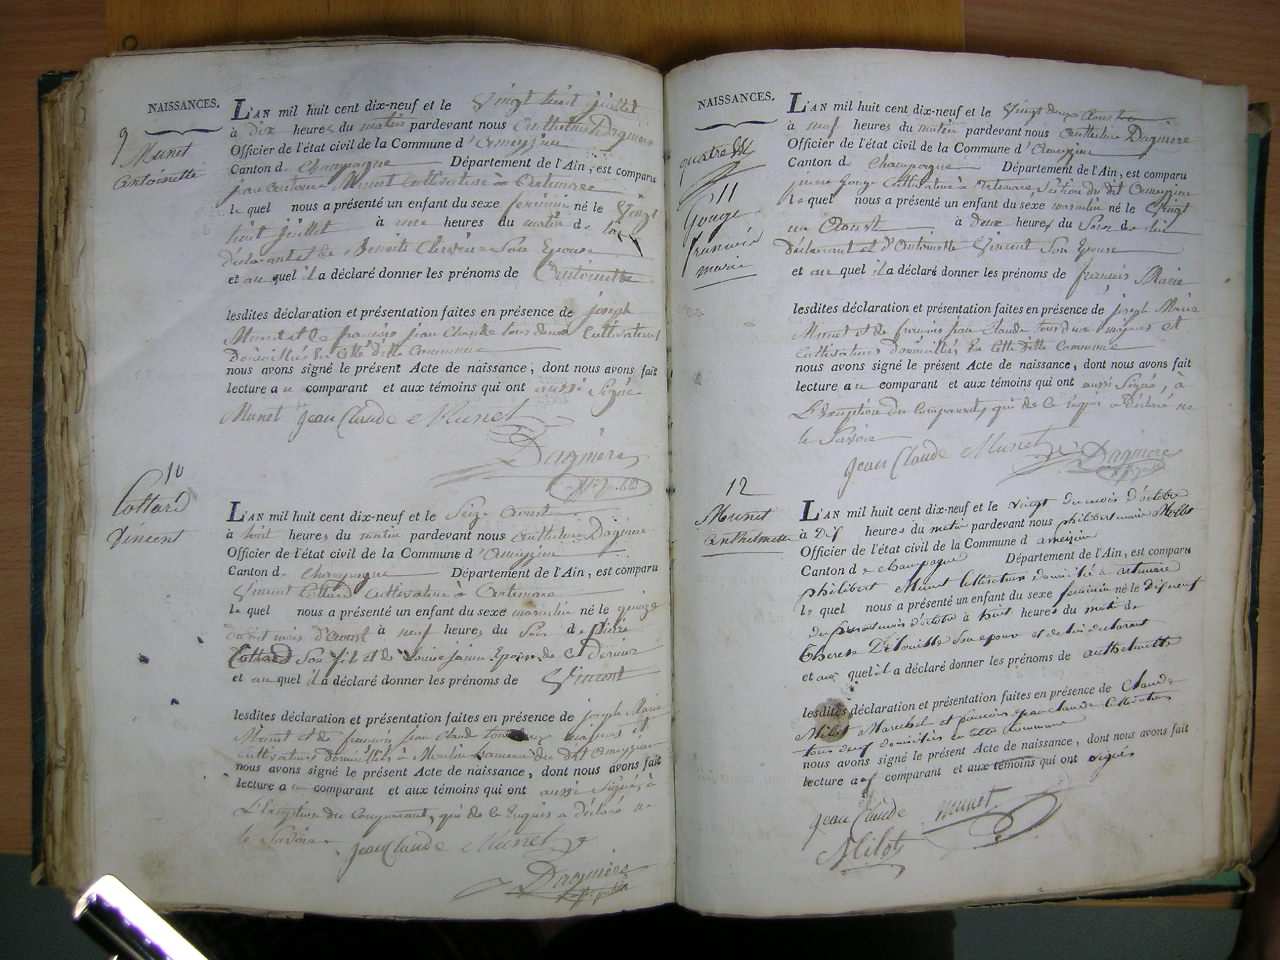 NAISSANCES.
9
Munet
antoinette
L'AN mil huit cent dix-neuf et le Vingt huit juillet
à dix heures du matin pardevant nous Anthelme Dagnière
Officier de l'état civil de la Commune d'ameyzieu
Canton d. Champagne Département de l'Ain, est comparu
Munet Cultivateur à
le quel nous a présenté un enfant du sexe feminin né le Vingt
huit juillet à une heures du matin d
déclarant et de Benoite son Epouse
et au quel il a déclaré donner les prénoms de Antoinette
lesdites déclaration et présentation faites en présence de joseph
Munet et de françois jean Claude tous deux Cultivateurs
Domiciliés en cette ditte Commune
nous avons signé le présent Acte de naissance, dont nous avons fait
lecture au comparant et aux témoins qui ont aussi Signé
Munet jean Claude Munet
Dagnière
10
Collard
Vincent
L'AN mil huit cent dix-neuf et le Seize Aoust
à huit heures du matin pardevant nous Anthelme Dagnière
Officier de l'état civil de la Commune d'Ameyzieu
Canton d. Champagne Département de l'Ain, est comparu
Vincent Collard Cultivateur à
le quel nous a présenté un enfant du sexe masculin né le quinze
mois d'Aoust à neuf heures du Soir de pierre
Collard Son fils et de Epouse de ce dernier
et au quel il a déclaré donner les prénoms de Vincent
lesdites déclaration et présentation faites en présence de joseph Marie
Munet et de françois jean Claude tous deux majeurs et
Cultivateurs domiciliés à du dit Ameyzieu
nous avons signé le présent Acte de naissance, dont nous avons fait
lecture au comparant et aux témoins qui ont aussi Signés à
L'Exception du Comparant, qui de ce Requis a déclaré ne
le Savoir
jean Claude Munet
Dagnière
NAISSANCES.
11
Gouge
francois
marie
L'AN mil huit cent dix-neuf et le Vingt deux Aoust
à neuf heures du matin pardevant nous Anthelme Dagnière
Officier de l'état civil de la Commune d'Ameyzieu
Canton d. Champagne Département de l'Ain, est comparu
pierre Gouge Cultivateur à Section du dit Ameyzieu
le quel nous a présenté un enfant du sexe masculin né le Vingt
un Aoust à deux heures du Soir de lui
déclarant et d'Antoinette Vincent Son Epouse
et au quel il a déclaré donner les prénoms de françois Marie
lesdites déclaration et présentation faites en présence de joseph Marie
Munet et de françois jean Claude tous deux majeurs et
Cultivateurs domiciliés en cette ditte Commune
nous avons signé le présent Acte de naissance, dont nous avons fait
lecture au comparant et aux témoins qui ont aussi Signé, à
L'Exception du Comparant, qui de ce Requis a déclaré ne
le Savoir
jean Claude Munet Dagnière
12
Munet
anthelmette
L'AN mil huit cent dix-neuf et le vingt du mois d'octobre
à Dix heures du matin pardevant nous philibert marie
Officier de l'état civil de la Commune d ameizieu
Canton d e champagne Département de l'Ain, est comparu
philibert Munet Cultivateur domicilié à
le quel nous a présenté un enfant du sexe feminin né le dixneuf
du mois d'octobre à huit heures du matin de
therese son epouse et de lui declarant
et au quel il a déclaré donner les prénoms de anthelmette
lesdites déclaration et présentation faites en présence de Claude
Milot Marechal et francois jean claude Cultivateur
tous deux domiciliés en cette commune
nous avons signé le présent Acte de naissance, dont nous avons fait
lecture au comparant et aux témoins qui ont signés
jean Claude munet
Milot